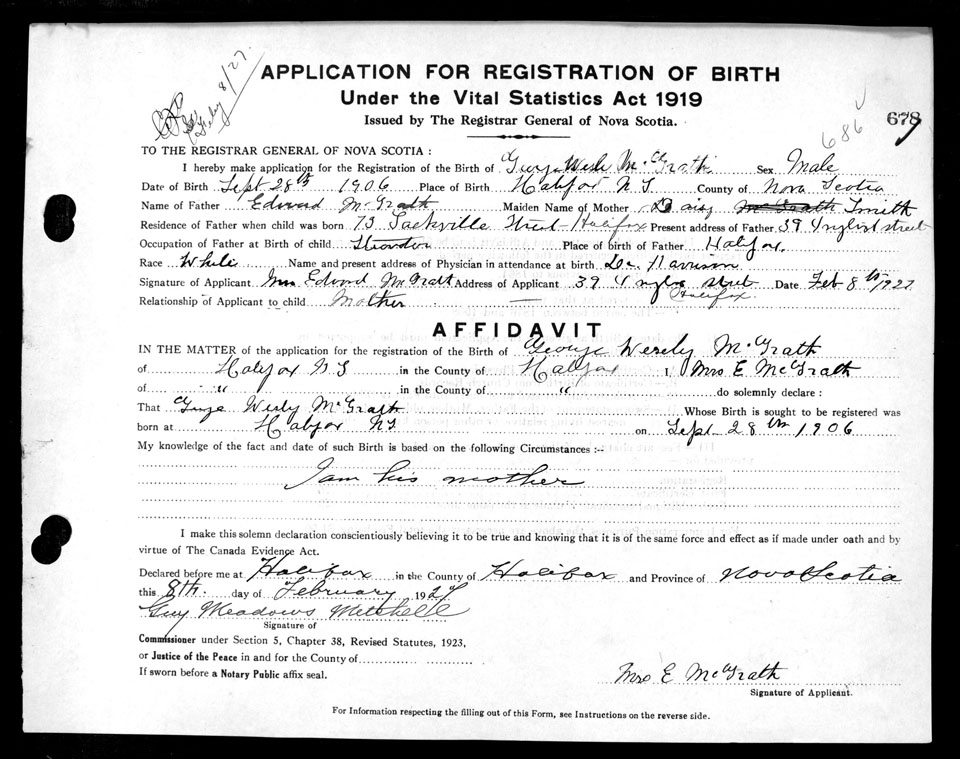 Feby 8/27
APPLICATION FOR REGISTRATION OF BIRTH
Under the Vital Statistics Act 1919
Issued by The Registrar General of Nova Scotia.
686
677
TO THE REGISTRAR GENERAL OF NOVA SCOTIA :
I hereby make application for the Registration of the Birth of George Wesly McGrath Sex Male
Date of Birth Sept 28th 1906 Place of Birth Halifax N S County of Nova Scotia
Name of Father Edward McGrath Maiden Name of Mother Daisy McGrath Smith
Residence of Father when child was born 73 Sackville Street Halifax Present address of Father 39 street
Occupation of Father at Birth of child Place of birth of Father Halifax.
Race White Name and present address of Physician in attendance at birth Dr. Harrison
Signature of Applicant Mrs Edward McGrath Address of Applicant 39 street Halifax Date Feb 8th 1927
Relationship of Applicant to child Mother
AFFIDAVIT
IN THE MATTER of the application for the registration of the Birth of George Wesely McGrath
of Halifax N S in the County of Halifax I, Mrs E McGrath
of " in the County of " do solemnly declare :
That George Wesly McGrath Whose Birth is sought to be registered was
born at Halifax NS on Sept 28th 1906
My knowledge of the fact and date of such Birth is based on the following Circumstances :--
I am his mother
I make this solemn declaration conscientiously believing it to be true and knowing that it is of the same force and effect as if made under oath and by
virtue of The Canada Evidence Act.
Declared before me at Halifax in the County of Halifax and Province of Nova Scotia
this 8th. day of February 1927
Guy Meadows Mitchelle
Signature of
Commissioner under Section 5, Chapter 38, Revised Statutes, 1923,
or Justice of the Peace in and for the County of
If sworn before a Notary Public affix seal.
Mrs E McGrath
Signature of Applicant.
For Information respecting the filling out of this Form, see Instructions on the reverse side.